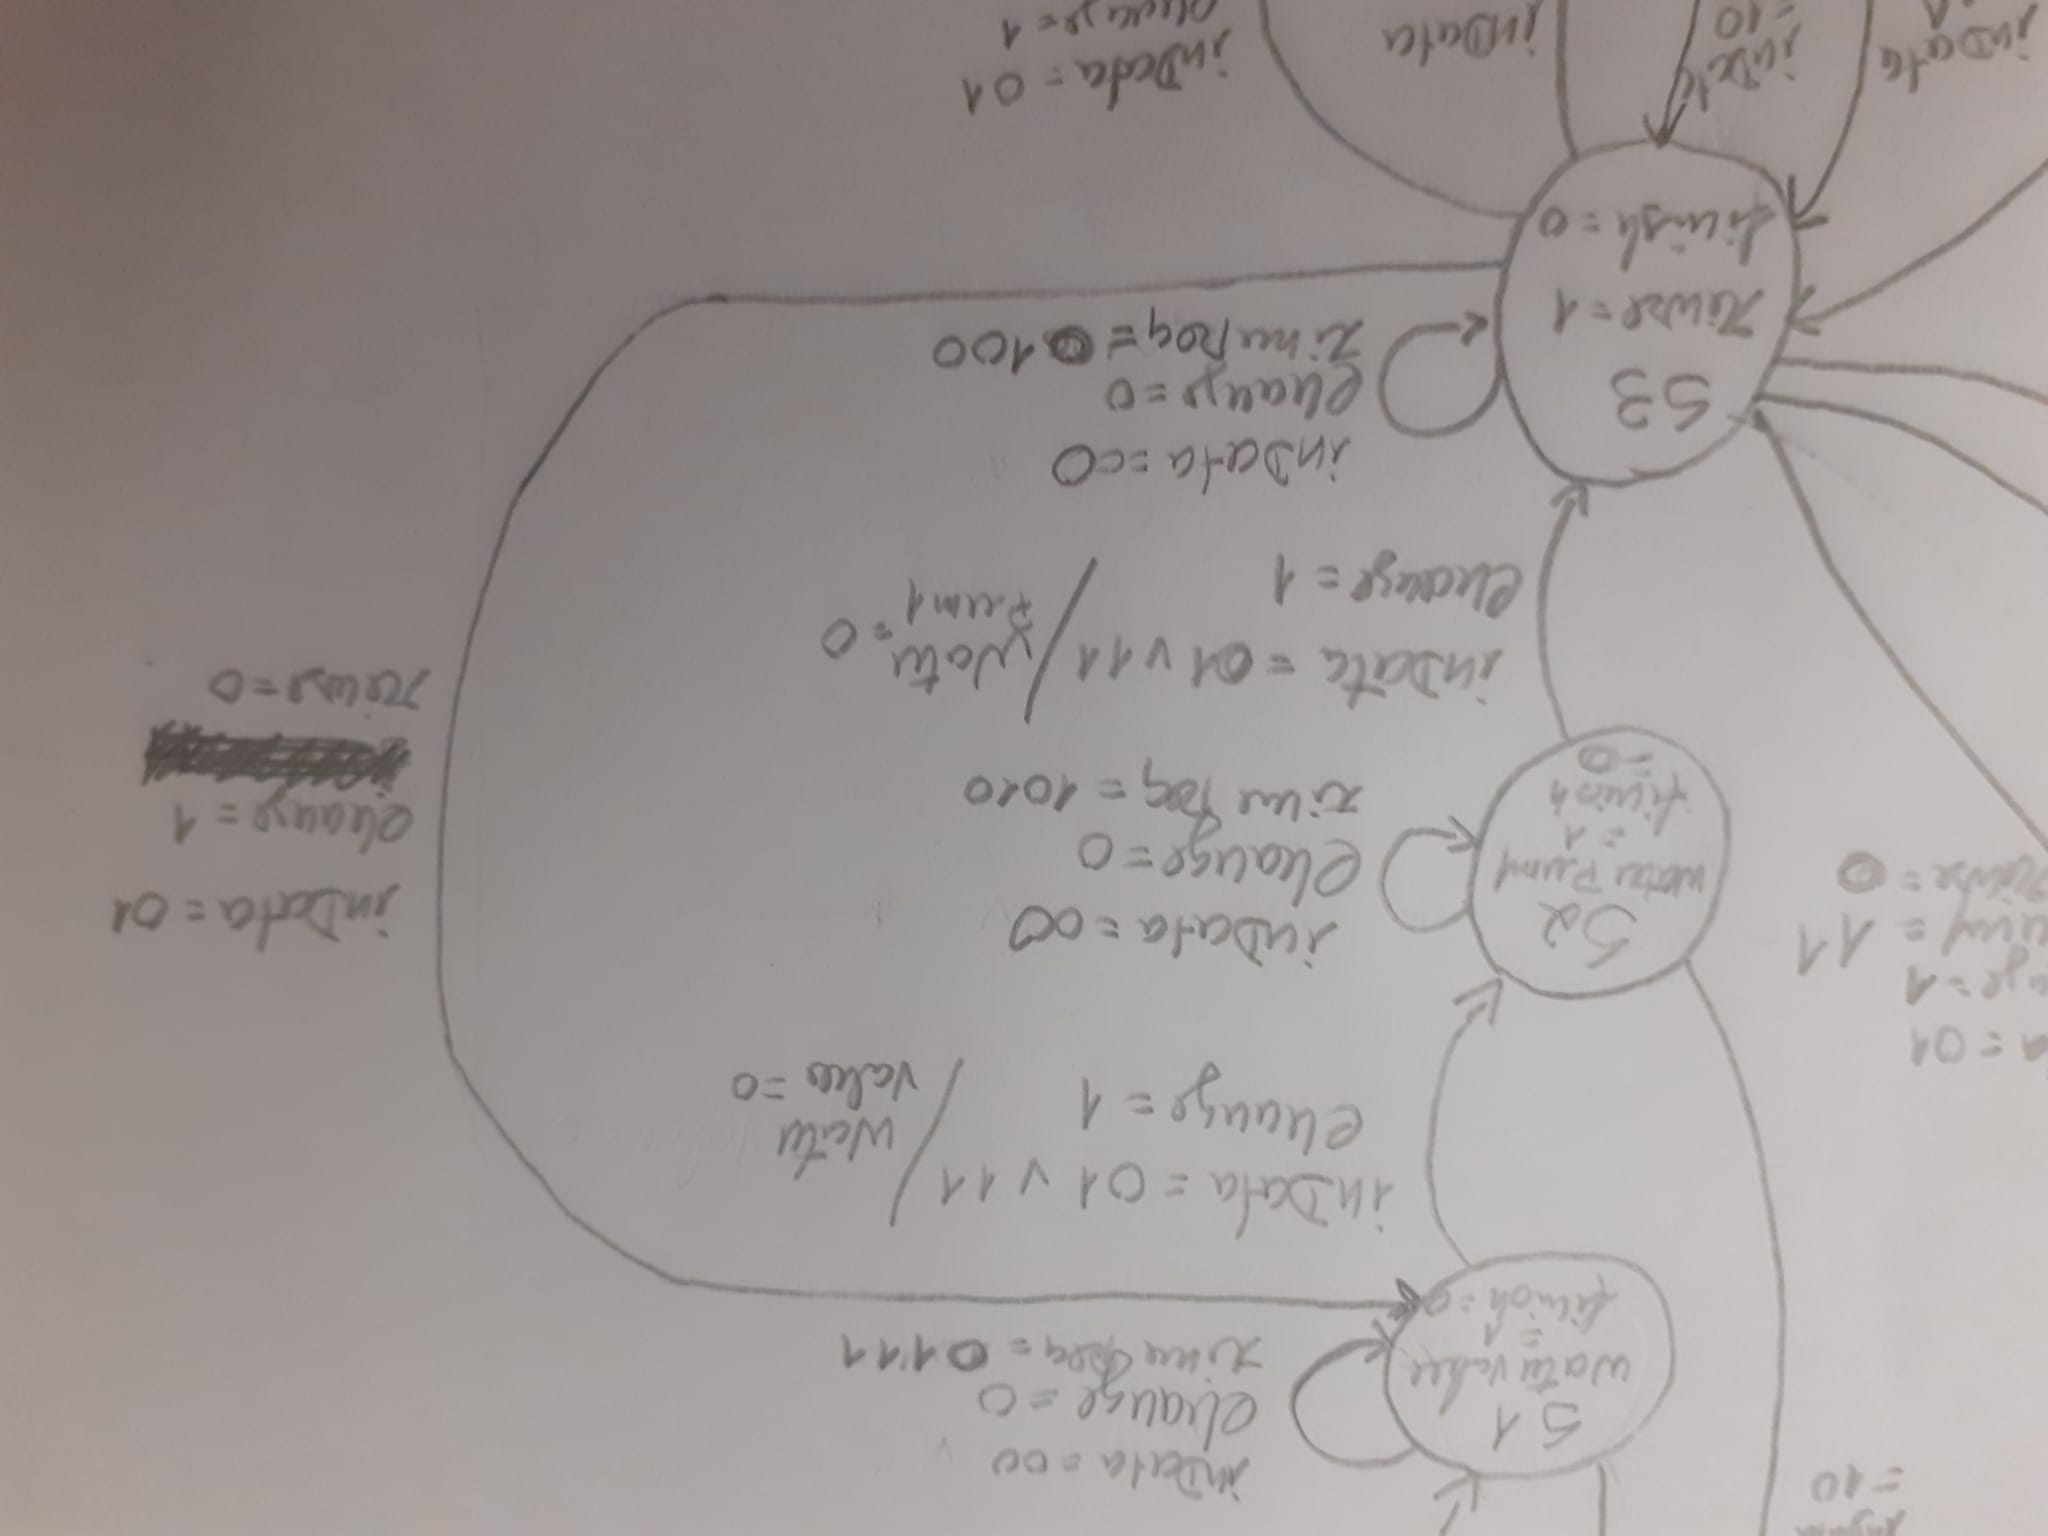 = 10
S1
water valve
= 1
finish = 0
inData = 00
change = 0
time Req = 0111
inData = 01 v 11 / water
change = 1
valve = 0
= 01
= 1
= 11
rinse = 0
S2
water Pump
= 1
finish
= 0
inData = 00
change = 0
time Req = 1010
inData = 01
change = 1
rinse = 0
inData = 01 v 11 / Water
Pump = 0
change = 1
S3
rinse = 1
finish = 0
inData = 00
change = 0
time Req = 0100
inData
inData
= 10
inData
inData = 01
change = 1